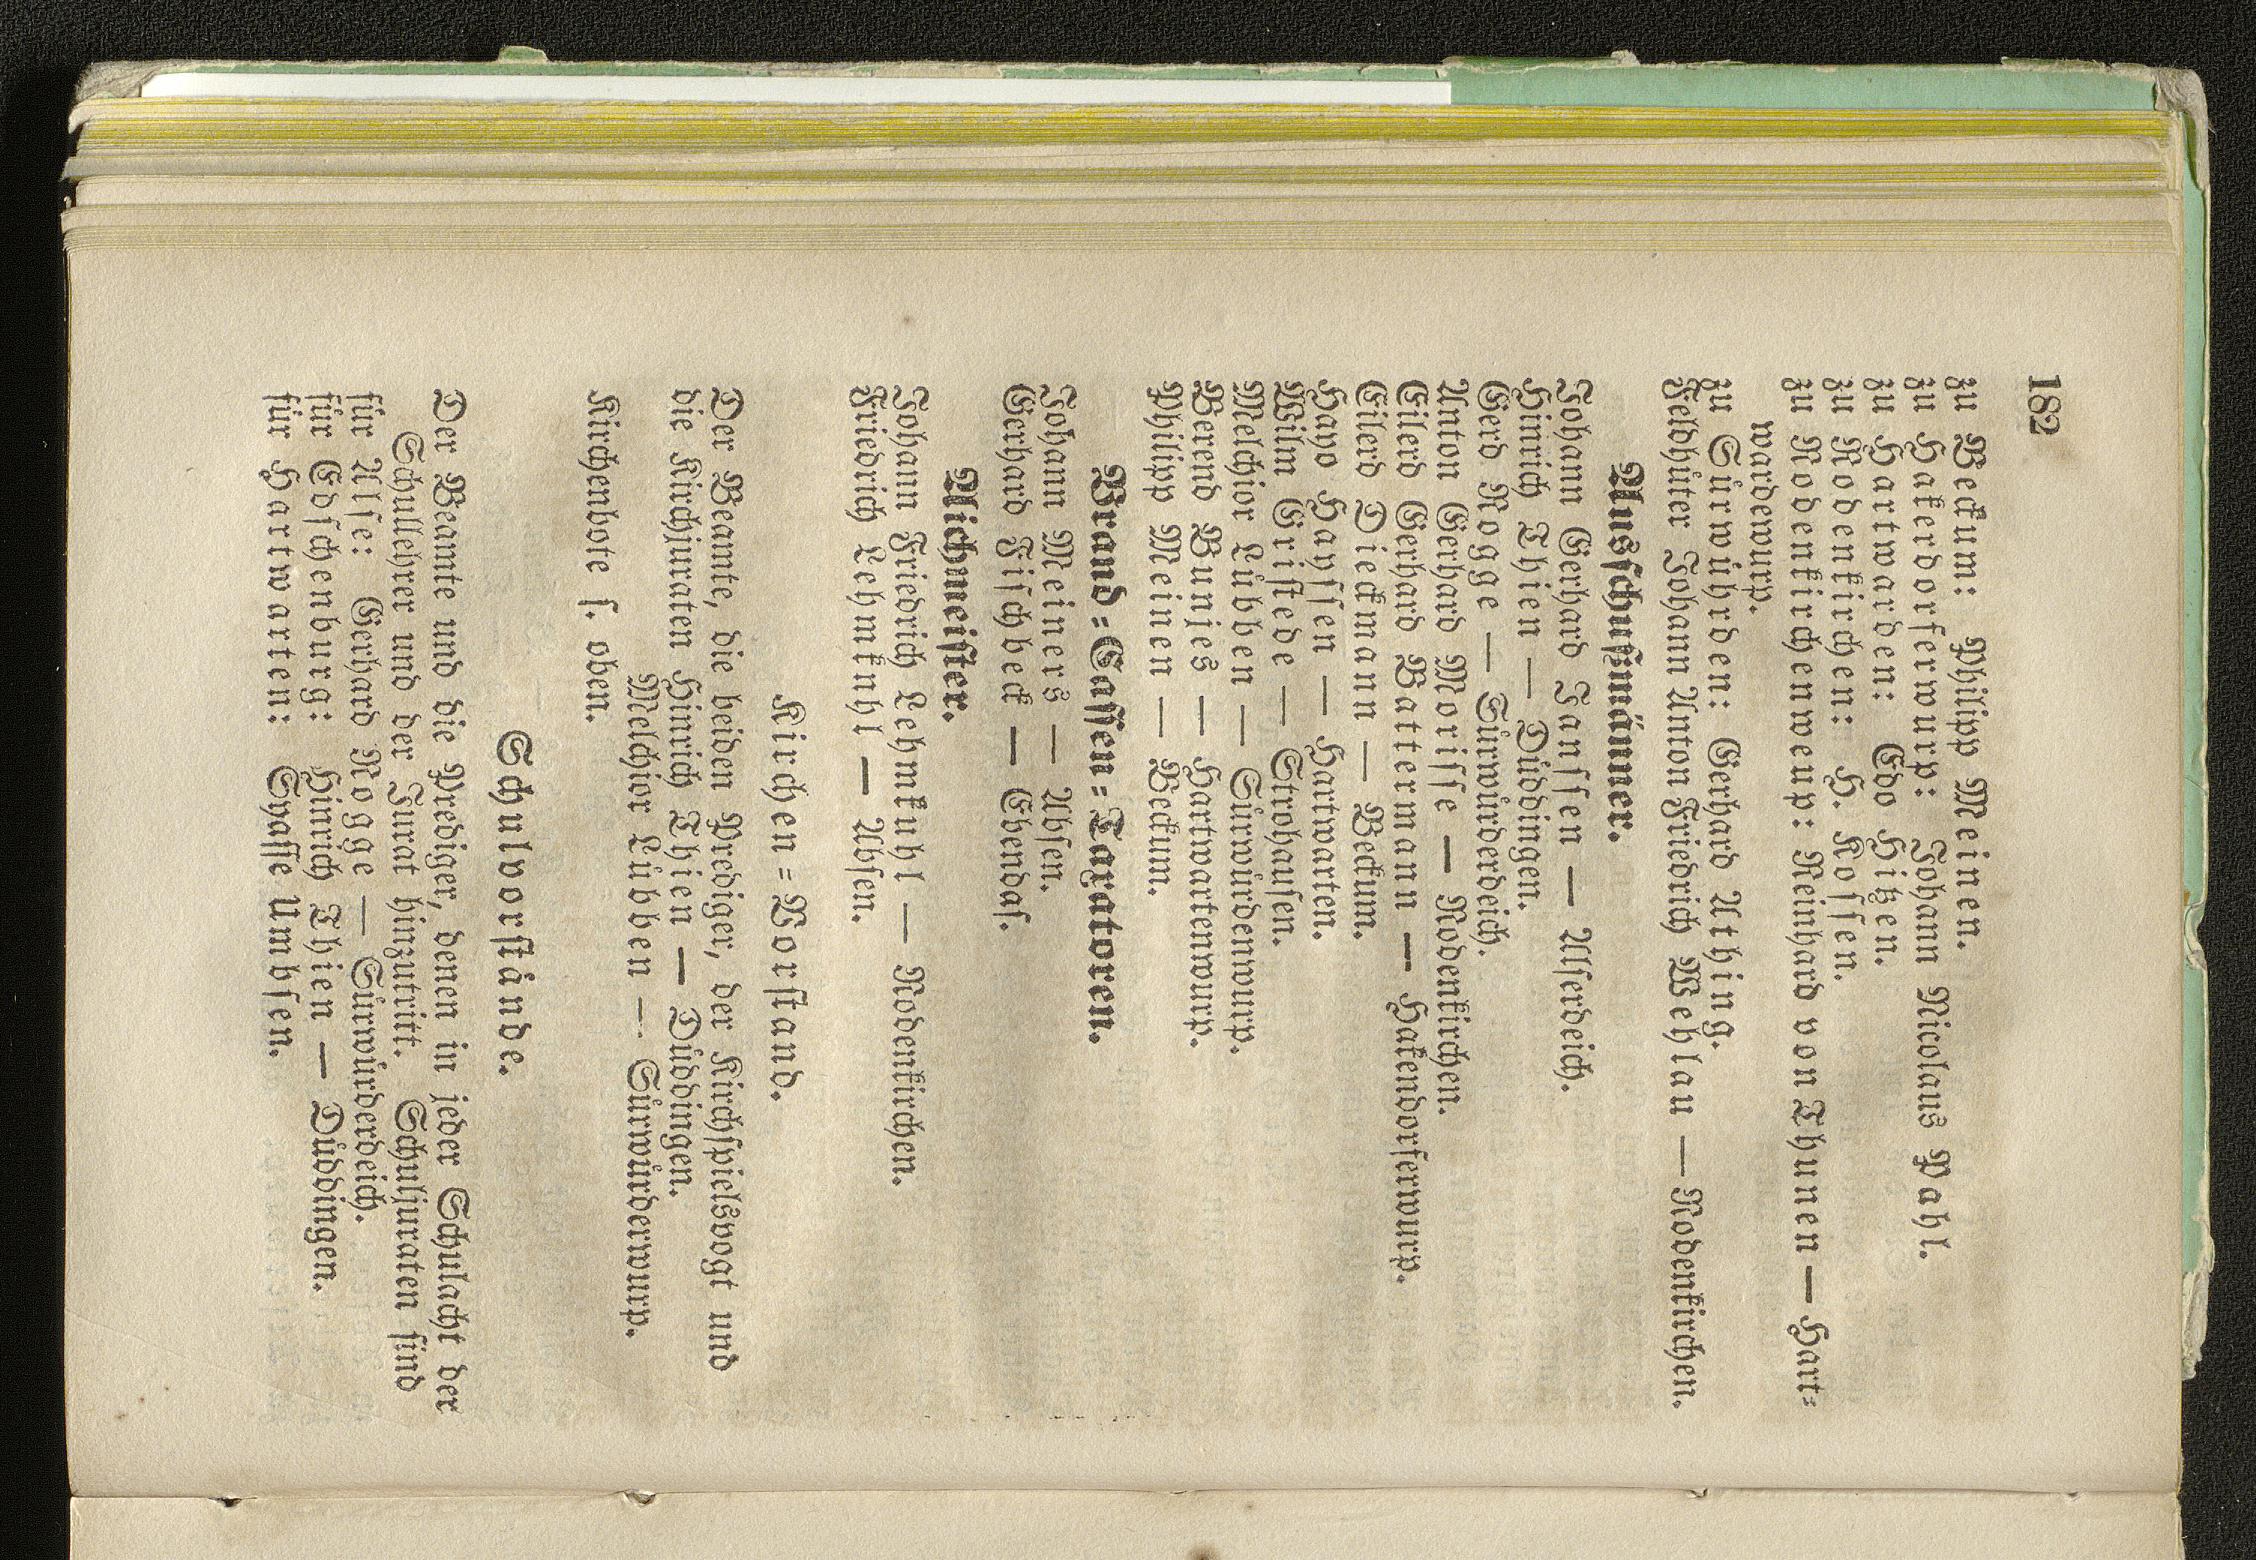 182
zu Beckum: Philipp Meinen.
zu Hakerdorferwurp: Johann Nicolaus Pahl.
zu Hartwarden: Edo Hitzen.
zu Rodenkirchen: H. Kossen.
zu Rodenkirchenweup: Reinhard von Thunen — Hart=
wardewurp.
zu Sürwührden: Gerhard Athing.
Feldhüter Johann Anton Friedrich Wehlau — Rodenkirchen.
Ausschußmänner.
Johann Gerhard Janssen — Alserdeich.
Hinrich Thien — Düddingen.
Gerd Rogge — Sürwürderdeich.
Anton Gerhard Morisse — Rodenkirchen.
Eilerd Gerhard Battermann — Hakendorferwurp.
Eilerd Dieckmann — Beckum.
Hayo Hayssen — Hartwarten.
Wilm Eristede — Strohausen.
Melchior Lübben — Sürwürdenwurp.
Berend Bunjes — Hartwartenwurp.
Philipp Meinen — Beckum.
Brand=Cassen=Taxatoren.
Johann Meiners — Absen.
Gerhard Fischbeck — Ebendas.
Aichmeister.
Johann Friedrich Lehmkuhl — Rodenkirchen.
Friedrich Lehmkuhl — Absen.
Kirchen=Vorstand.
Der Beamte, die beiden Prediger, der Kirchspielsvogt und
die Kirchjuraten Hinrich Thien — Düddingen.
Melchior Lübben — Sürwürderwurp.
Kirchenbote s. oben.
Schulvorstände.
Der Beamte und die Prediger, denen in jeder Schulacht der
Schullehrer und der Jurat hinzutritt. Schuljuraten sind
für Alse: Gerhard Rogge — Sürwürderdeich.
für Edschenburg: Hinrich Thien — Düddingen.
für Hartwarten: Spasse Umbsen.